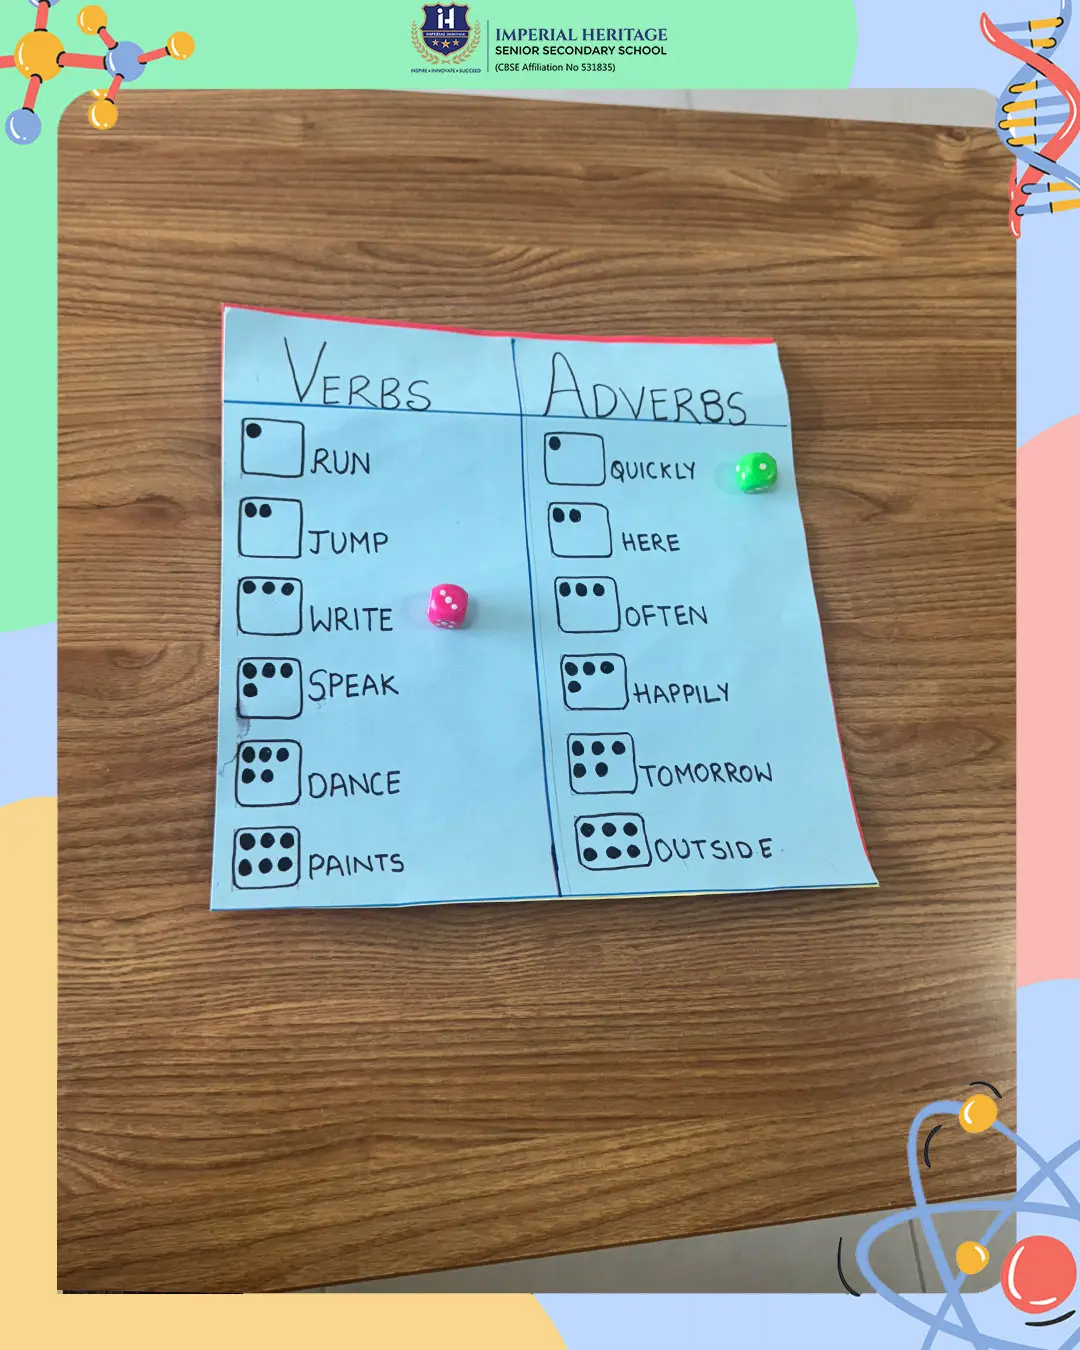 iH
IMPERIAL HERITAGE
INSPIRE • INNOVATE • SUCCEED
IMPERIAL HERITAGE
SENIOR SECONDARY SCHOOL
(CBSE Affiliation No 531835)
VERBS
ADVERBS
RUN
QUICKLY
JUMP
HERE
WRITE
OFTEN
SPEAK
HAPPILY
DANCE
TOMORROW
PAINTS
OUTSIDE